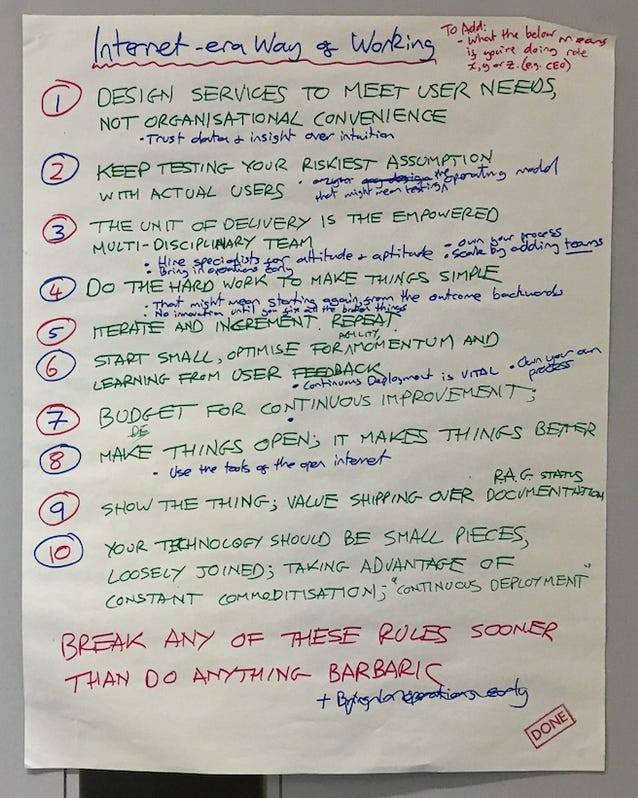 Internet-era Way of Working
To Add:
- what the below means
is you're doing role
x, y or z. (eg. CEO)
1 DESIGN SERVICES TO MEET USER NEEDS,
NOT ORGANISATIONAL CONVENIENCE
• Trust data + insight over intuition
2 KEEP TESTING YOUR RISKIEST ASSUMPTION
WITH ACTUAL USERS • the operating model
that might mean testing
3 THE UNIT OF DELIVERY IS THE EMPOWERED
MULTI-DISCIPLINARY TEAM
- own your process
• Hire specialists for attitude + aptitude • Scale by adding teams
• Bring in operations early
4 DO THE HARD WORK TO MAKE THINGS SIMPLE
• That might mean starting again, from the outcome backwards
• No innovation until you fix all the broken things
5 ITERATE AND INCREMENT. REPEAT.
AGILITY,
6 START SMALL, OPTIMISE FOR MOMENTUM AND
LEARNING FROM USER FEEDBACK
• Continuous Deployment is VITAL • Own your own
process
7 BUDGET FOR CONTINUOUS IMPROVEMENT;
DE
8 MAKE THINGS OPEN; IT MAKES THINGS BETTER
• Use the tools of the open internet
R.A.G. STATUS
9 SHOW THE THING; VALUE SHIPPING OVER DOCUMENTATION
10 YOUR TECHNOLOGY SHOULD BE SMALL PIECES,
LOOSELY JOINED; TAKING ADVANTAGE OF
CONSTANT COMMODITISATION; "CONTINUOUS DEPLOYMENT"
BREAK ANY OF THESE RULES SOONER
THAN DO ANYTHING BARBARIC
+ Bring in operations early
DONE